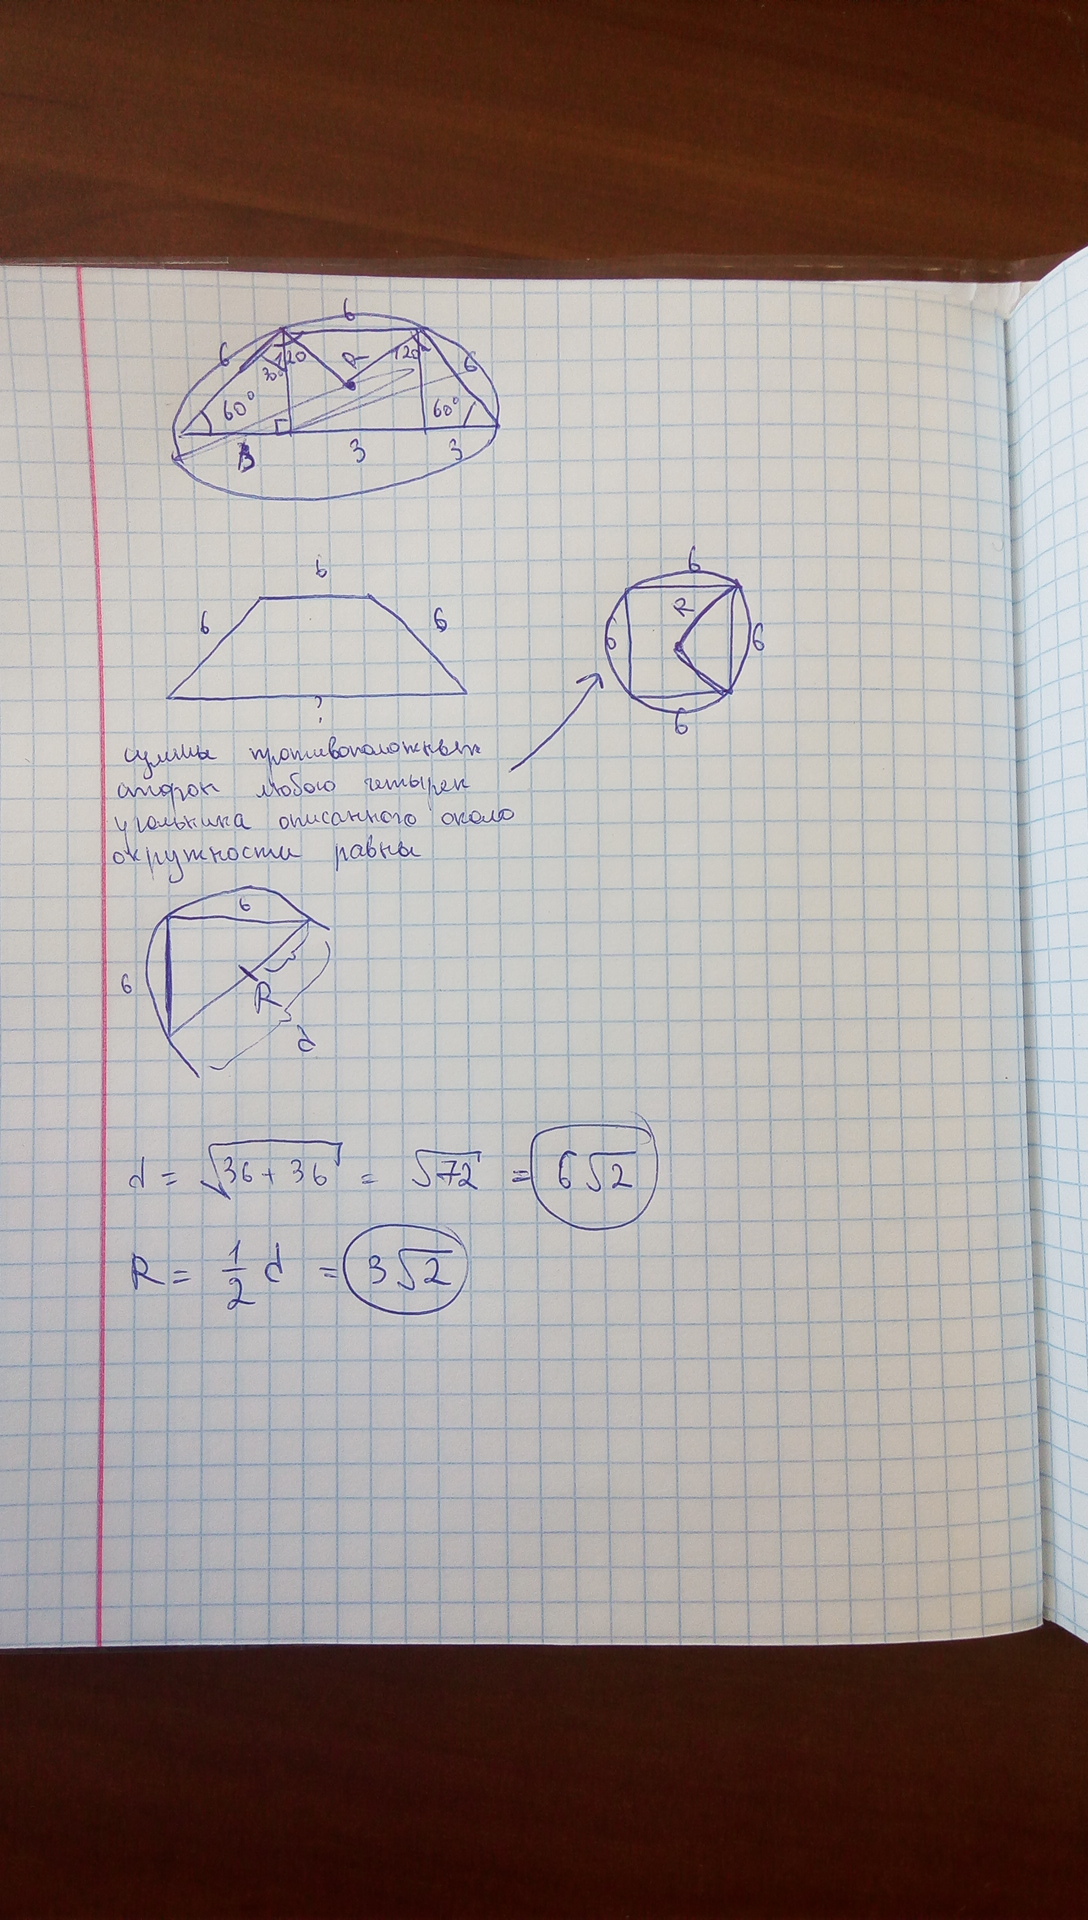 6
6 30° 120 R 120° 6
60° 60°
3 3 3
6
6 6
?
6
6 R 6
6
суммы противоположных
сторон любого четырех
угольника описанного около
окружности равны
6
6
R
d
d = √36 + 36 = √72 = 6√2
R = 1/2 d = 3√2